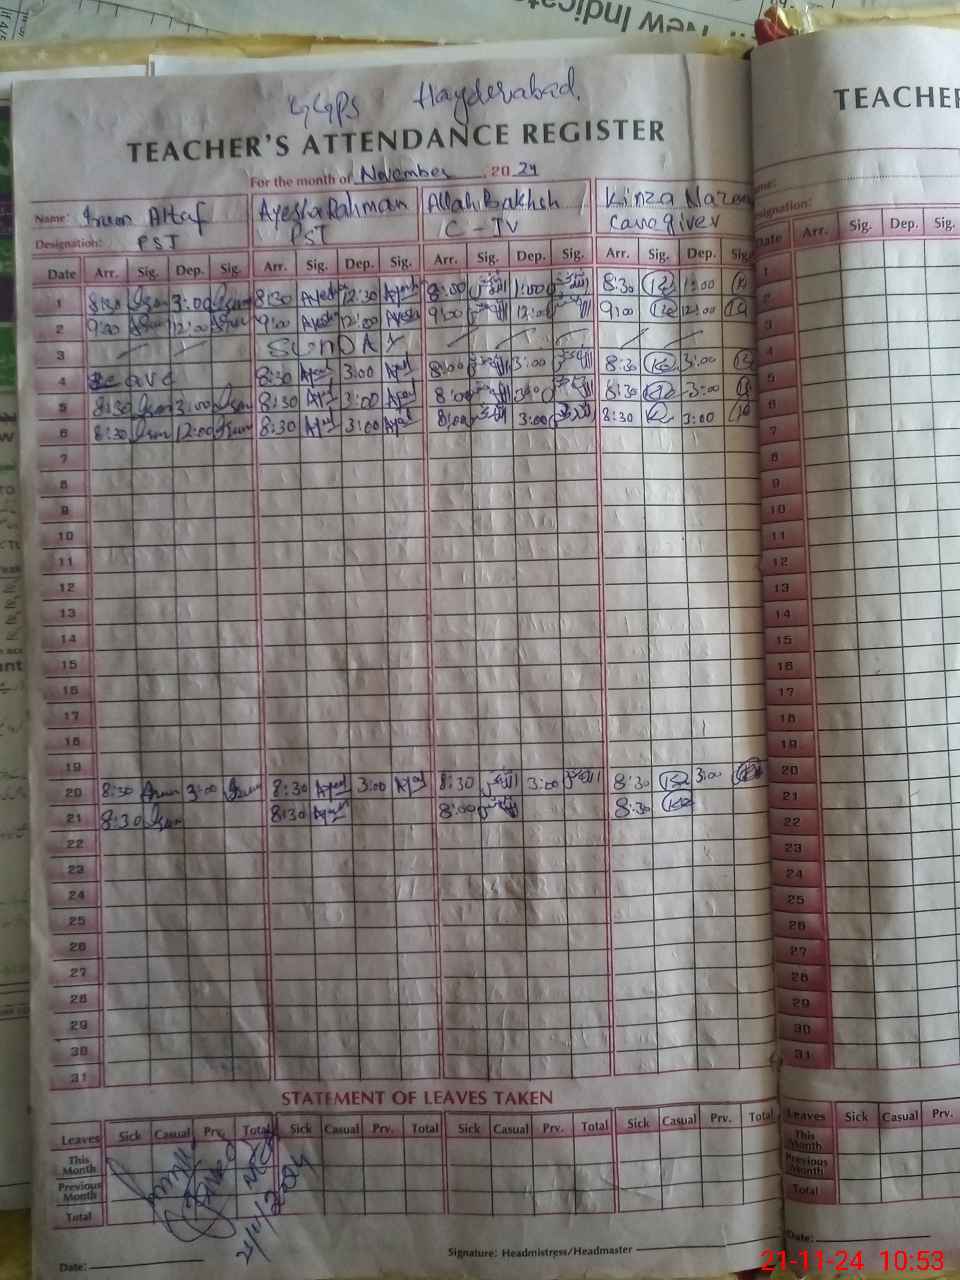 New Indicat
GGPS Hayderabad.
TEACHER'S ATTENDANCE REGISTER
For the month of November, 20 24
Name: Irum Altaf Ayesha Rahman Allah Bakhsh Kinza Nazee
Designation: PST PST C-IV Caregiver
Date Arr. Sig. Dep. Sig. Arr. Sig. Dep. Sig. Arr. Sig. Dep. Sig. Arr. Sig. Dep. Sig.
1 8:30 3:00 8:30 Ayesh 12:30 Ayesh 8:00 1:00 8:30 1:00
2 9:00 12:00 9:00 Ayesh 12:00 Ayesha 9:00 12:00 9:00 12:00
3 SUNDAY
4 Leave 8:30 Ayesh 3:00 Ayesh 8:00 3:00 8:30 3:00
5 8:30 3:00 8:30 Ayesh 3:00 Ayesh 8:00 3:00 8:30 3:00
6 8:30 12:00 8:30 Ayesh 3:00 Ayesh 8:00 3:00 8:30 3:00
7
8
9
10
11
12
13
14
15
16
17
18
19
20 8:30 3:00 8:30 Ayesh 3:00 Ayesh 8:30 3:00 8:30 3:00
21 8:30 8:30 Ayesh 8:00 8:30
22
23
24
25
26
27
28
29
30
31
STATEMENT OF LEAVES TAKEN
Leaves Sick Casual Prv. Total Sick Casual Prv. Total Sick Casual Prv. Total Sick Casual Prv. Total
This Month
Previous Month
Total
21/11/2024
Date:
Signature: Headmistress/Headmaster
TEACHER
Name:
Designation:
Date Arr. Sig. Dep. Sig.
1
2
3
4
5
6
7
8
9
10
11
12
13
14
15
16
17
18
19
20
21
22
23
24
25
26
27
28
29
30
31
Leaves Sick Casual Prv.
This Month
Previous Month
Total
Date:
21-11-24 10:53